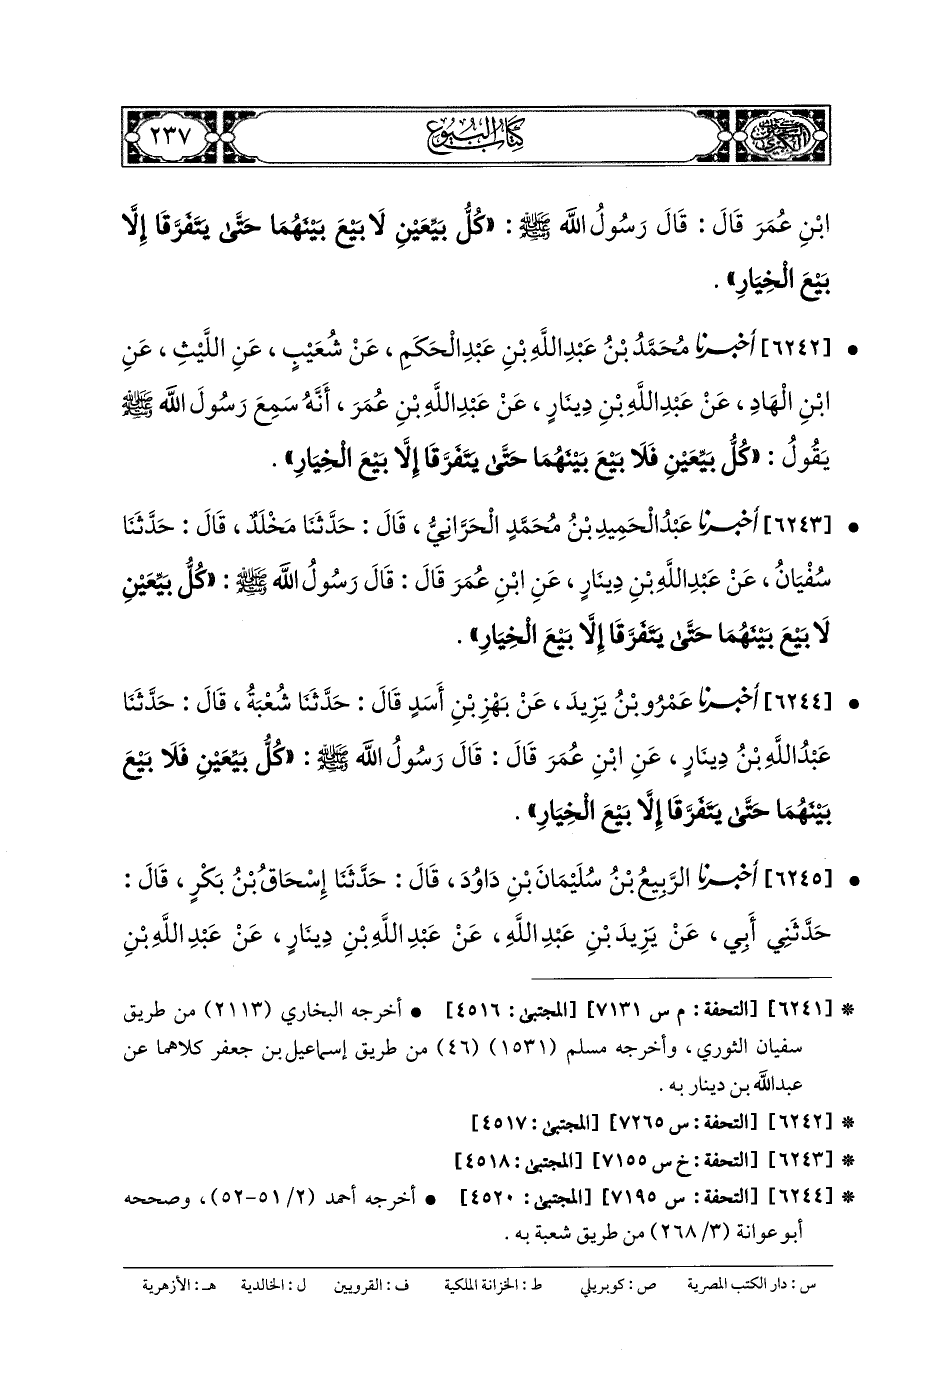 ٢٣٧ كتاب البيوع السنن الكبرى
ابْنِ عُمَرَ قَالَ : قَالَ رَسُولُ اللَّه ﷺ : «كُلُّ بَيِّعَيْنِ لَا بَيْعَ بَيْنَهُمَا حَتَّى يَتَفَرَّقَا إِلَّا
بَيْعَ الْخِيَارِ» .
• [٦٢٤٢] أَخْبَرَنَا مُحَمَّدُ بْنُ عَبْدِاللَّهِ بْنِ عَبْدِالْحَكَمِ ، عَنْ شُعَيْبٍ ، عَنِ اللَّيْثِ ، عَنِ
ابْنِ الْهَادِ ، عَنْ عَبْدِاللَّهِ بْنِ دِينَارٍ ، عَنْ عَبْدِاللَّهِ بْنِ عُمَرَ ، أَنَّهُ سَمِعَ رَسُولَ اللَّه ﷺ
يَقُولُ : «كُلُّ بَيِّعَيْنِ فَلَا بَيْعَ بَيْنَهُمَا حَتَّى يَتَفَرَّقَا إِلَّا بَيْعَ الْخِيَارِ» .
• [٦٢٤٣] أَخْبَرَنَا عَبْدُالْحَمِيدِ بْنُ مُحَمَّدٍ الْحَرَّانِيُّ ، قَالَ : حَدَّثَنَا مَخْلَدٌ ، قَالَ : حَدَّثَنَا
سُفْيَانُ ، عَنْ عَبْدِاللَّهِ بْنِ دِينَارٍ ، عَنِ ابْنِ عُمَرَ قَالَ : قَالَ رَسُولُ اللَّه ﷺ : «كُلُّ بَيِّعَيْنِ
لَا بَيْعَ بَيْنَهُمَا حَتَّى يَتَفَرَّقَا إِلَّا بَيْعَ الْخِيَارِ» .
• [٦٢٤٤] أَخْبَرَنَا عَمْرُو بْنُ يَزِيدَ ، عَنْ بَهْزِ بْنِ أَسَدٍ قَالَ : حَدَّثَنَا شُعْبَةُ ، قَالَ : حَدَّثَنَا
عَبْدُاللَّهِ بْنُ دِينَارٍ ، عَنِ ابْنِ عُمَرَ قَالَ : قَالَ رَسُولُ اللَّه ﷺ : «كُلُّ بَيِّعَيْنِ فَلَا بَيْعَ
بَيْنَهُمَا حَتَّى يَتَفَرَّقَا إِلَّا بَيْعَ الْخِيَارِ» .
• [٦٢٤٥] أَخْبَرَنَا الرَّبِيعُ بْنُ سُلَيْمَانَ بْنِ دَاوُدَ ، قَالَ : حَدَّثَنَا إِسْحَاقُ بْنُ بَكْرٍ ، قَالَ :
حَدَّثَنِي أَبِي ، عَنْ يَزِيدَ بْنِ عَبْدِاللَّهِ ، عَنْ عَبْدِاللَّهِ بْنِ دِينَارٍ ، عَنْ عَبْدِاللَّهِ بْنِ
* [٦٢٤١] [التحفة: م س ٧١٣١] [المجتبى: ٤٥١٦] • أخرجه البخاري (٢١١٣) من طريق
سفيان الثوري ، وأخرجه مسلم (١٥٣١) (٤٦) من طريق إسماعيل بن جعفر كلاهما عن
عبدالله بن دينار به .
* [٦٢٤٢] [التحفة: س ٧٢٦٥] [المجتبى: ٤٥١٧]
* [٦٢٤٣] [التحفة: خ س ٧١٥٥] [المجتبى: ٤٥١٨]
* [٦٢٤٤] [التحفة: س ٧١٩٥] [المجتبى: ٤٥٢٠] • أخرجه أحمد (٢/ ٥١-٥٢) ، وصححه
أبو عوانة (٣/ ٢٦٨) من طريق شعبة به .
س : دار الكتب المصرية ص : كوبريلي ط : الخزانة الملكية ف : القرويين ل : الخالدية هـ : الأزهرية